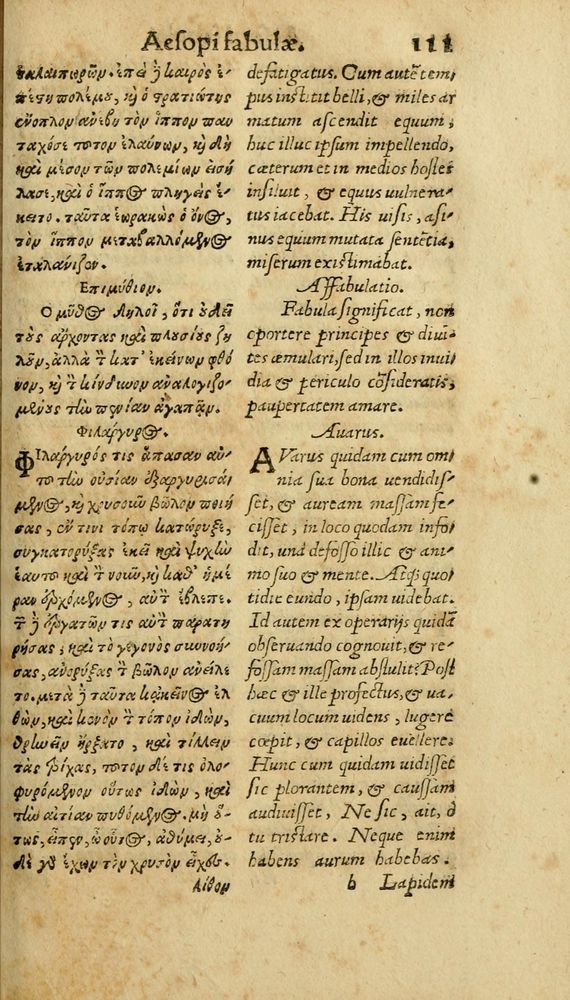 Aesopi fabulæ. 111
ταλαιπωρῶν. ἐπεὶ ἢ καιρὸς ἐ-
πέστη πολέμου, κὴ ὁ στρατιώτης
ἔνοπλον ἀνέβη τὸν ἵππον παν
ταχόσε τοῦτον ἐλαύνων, κὴ δὴ
καὶ μέσον τῶν πολεμίων εἰσή
λασε, καὶ ὁ ἵππος πληγεὶς ἔ-
κειτο. ταῦτα ἑωρακὼς ὁ ὄνος,
τὸν ἵππον μεταβαλλόμενος
ἐταλάνιζον.
Επιμύθιον.
Ο μῦθος δηλοῖ, ὅτι οὐ δεῖ
τοὺς ἄρχοντας καὶ πλουσίους ζη
λοῦν, ἀλλὰ τ̀ κατ' ἐκείνων φθό
νον, κὴ τ̀ κίνδυνον ἀναλογιζο-
μένους τὴν πενίαν ἀγαπᾶν.
Φιλάργυρος.
ΦΙλάργυρός τις ἅπασαν αὐ-
τοῦ τὴν οὐσίαν ἐξαργυρισά-
μενος, κὴ χρυσοῦν βῶλον ποιή
σας, ἔν τινι τόπῳ κατώρυξε,
συγκατορύξας ἐκεῖ καὶ ψυχὴν
ἑαυτοῦ καὶ τ̀ νοῦν, κὴ καθ' ἡμέ
ραν ἐρχόμενος, αὐτ̀ ἔβλεπε.
τ̃ ἢ ἐργατῶν τις αὐτ̀ παρατη
ρήσας, καὶ τὸ γεγονὸς συννοή-
σας, ἀνορύξας τ̀ βῶλον ἀνείλε
το. μετὰ ἢ ταῦτα κἀκεῖνος ἐλ
θὼν, καὶ κενὸν τ̀ τόπον ἰδὼν,
θρηνεῖν ἤρξατο, καὶ τίλλειν
τὰς τρίχας, τοῦτον δέ τις ὀλο-
φυρόμενον οὕτως ἰδὼν, καὶ
τὴν αἰτίαν πυθόμενος. μὴ οὕ-
τως, εἶπεν, ὦ οὗτος, ἀθύμει, οὐ-
δὲ γὸ ἔχων τὸν χρυσὸν εἶχες.
λίθον
defatigatus. Cum autẽ tem
pus institit belli, & miles ar
matum ascendit equum,
huc illuc ipsum impellendo,
cæterum et in medios hostes
insiluit, & equus uulnera-
tus iacebat. His uisis, asi-
nus equum mutata sentẽtia,
miserum existimabat.
Affabulatio.
Fabula significat, non
oportere principes & diui-
tes æmulari, sed in illos inui
dia & periculo cõsideratis,
paupertatem amare.
Auarus.
AVarus quidam cum om
nia sua bona uendidis-
set, & auream massam fe-
cisset, in loco quodam info
dit, unà defosso illic & ani-
mo suo & mente. Atq; quo
tidie eundo, ipsam uidebat.
Id autem ex operarijs quidã
obseruando cognouit, & re-
fossam massam abstulit? Post
hæc & ille profectus, & ua-
cuum locum uidens, lugere
cœpit, & capillos euellere.
Hunc cum quidam uidisset
sic plorantem, & caussam
audiuisset, Ne sic, ait, ò
tu tristare. Neque enim
habens aurum habebas.
b Lapidem